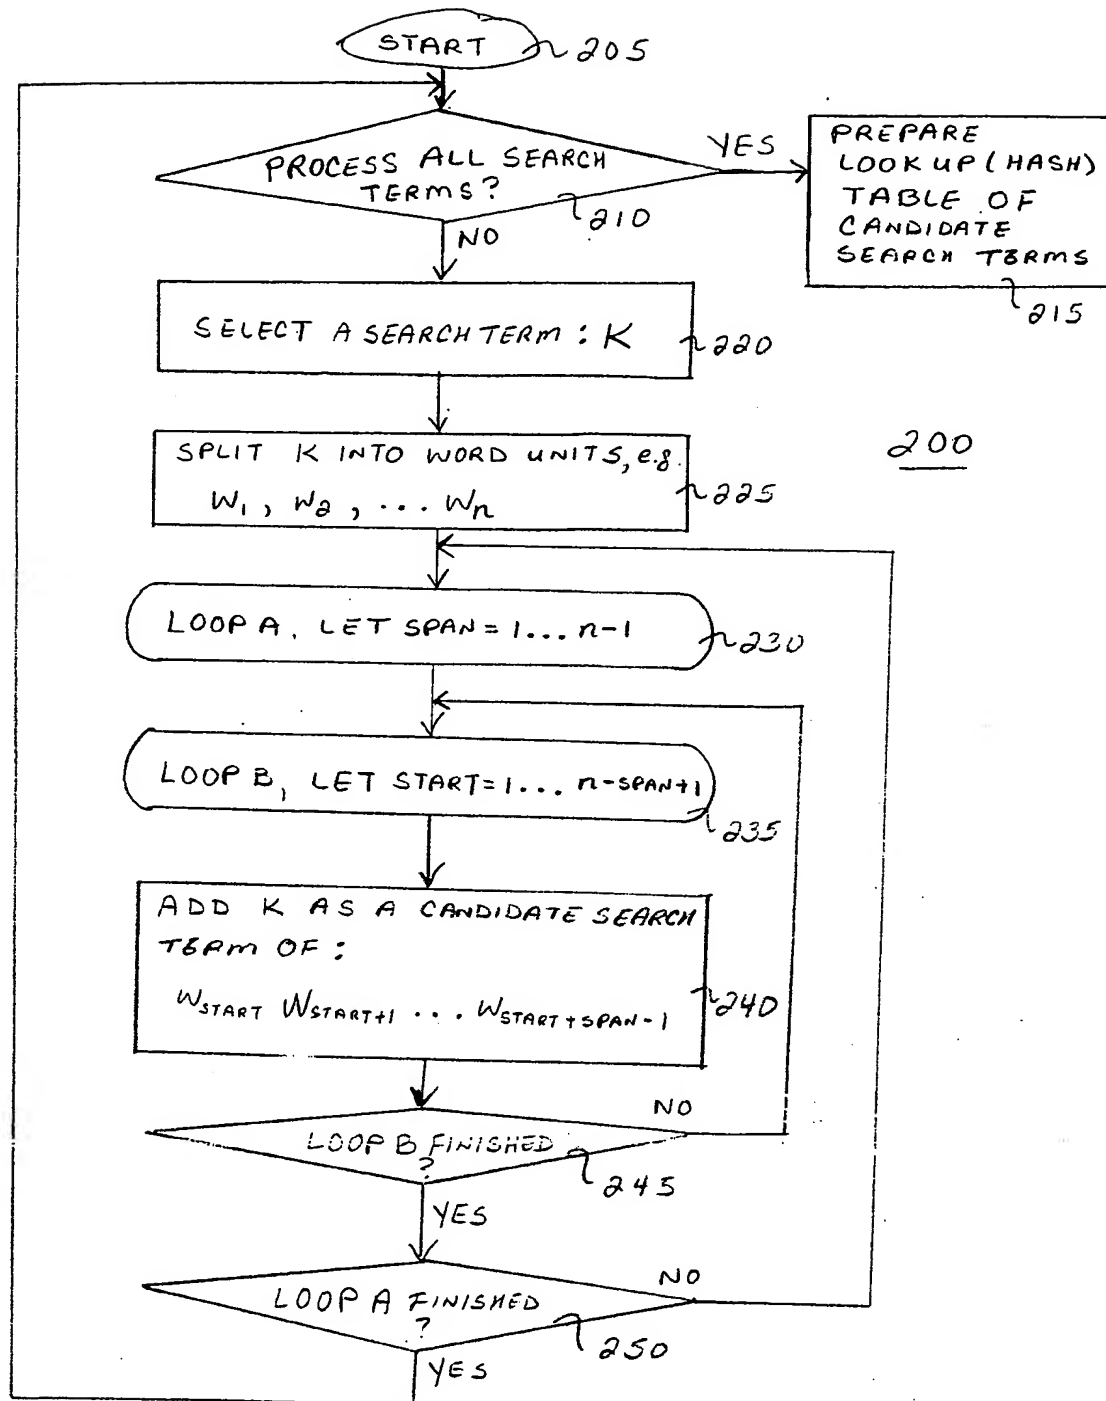 START
205
PROCESS ALL SEARCH
TERMS?
210
YES
PREPARE
LOOKUP (HASH)
TABLE OF
CANDIDATE
SEARCH TERMS
215
NO
SELECT A SEARCH TERM : K
220
200
SPLIT K INTO WORD UNITS, e.g.
W1, W2, ... Wn
225
LOOP A, LET SPAN = 1... n-1
230
LOOP B, LET START = 1... n-SPAN+1
235
ADD K AS A CANDIDATE SEARCH
TERM OF :
WSTART WSTART+1 ... WSTART+SPAN-1
240
NO
LOOP B FINISHED
?
245
YES
NO
LOOP A FINISHED
?
250
YES